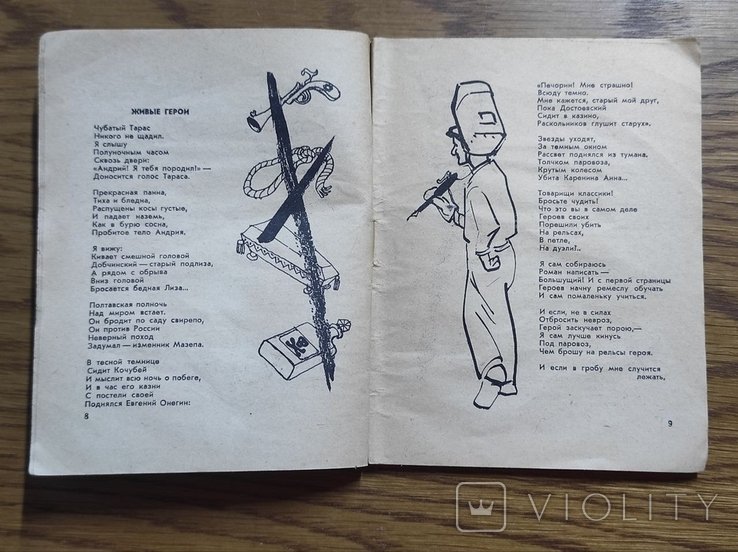 ЖИВЫЕ ГЕРОИ
Чубатый Тарас
Никого не щадил.
Я слышу
Полуночным часом
Сквозь двери:
«Андрий! Я тебя породил!» —
Доносится голос Тараса.
Прекрасная панна,
Тиха и бледна,
Распущены косы густые,
И падает наземь,
Как в бурю сосна,
Пробитое тело Андрия.
Я вижу:
Кивает смешной головой
Добчинский — старый подлиза,
А рядом с обрыва
Вниз головой
Бросается бедная Лиза...
Полтавская полночь
Над миром встает.
Он бродит по саду свирепо,
Он против России
Неверный поход
Задумал — изменник Мазепа.
В тесной темнице
Сидит Кочубей
И мыслит всю ночь о побеге,
И в час его казни
С постели своей
Поднялся Евгений Онегин:
8
«Печорин! Мне страшно!
Всюду темно.
Мне кажется, старый мой друг,
Пока Достоевский
Сидит в казино,
Раскольников глушит старух».
Звезды уходят,
За темным окном
Рассвет поднялся из тумана,
Толчком паровоза,
Крутым колесом
Убита Каренина Анна...
Товарищи классики!
Бросьте чудить!
Что это вы в самом деле
Героев своих
Порешили убить
На рельсах,
В петле,
На дуэли?..
Я сам собираюсь
Роман написать —
Большущий! И с первой страницы
Героев начну ремеслу обучать
И сам помаленьку учиться.
И если, не в силах
Отбросить невроз,
Герой заскучает порою,—
Я сам лучше кинусь
Под паровоз,
Чем брошу на рельсы героя.
И если в гробу мне случится
лежать,
9
VIOLITY